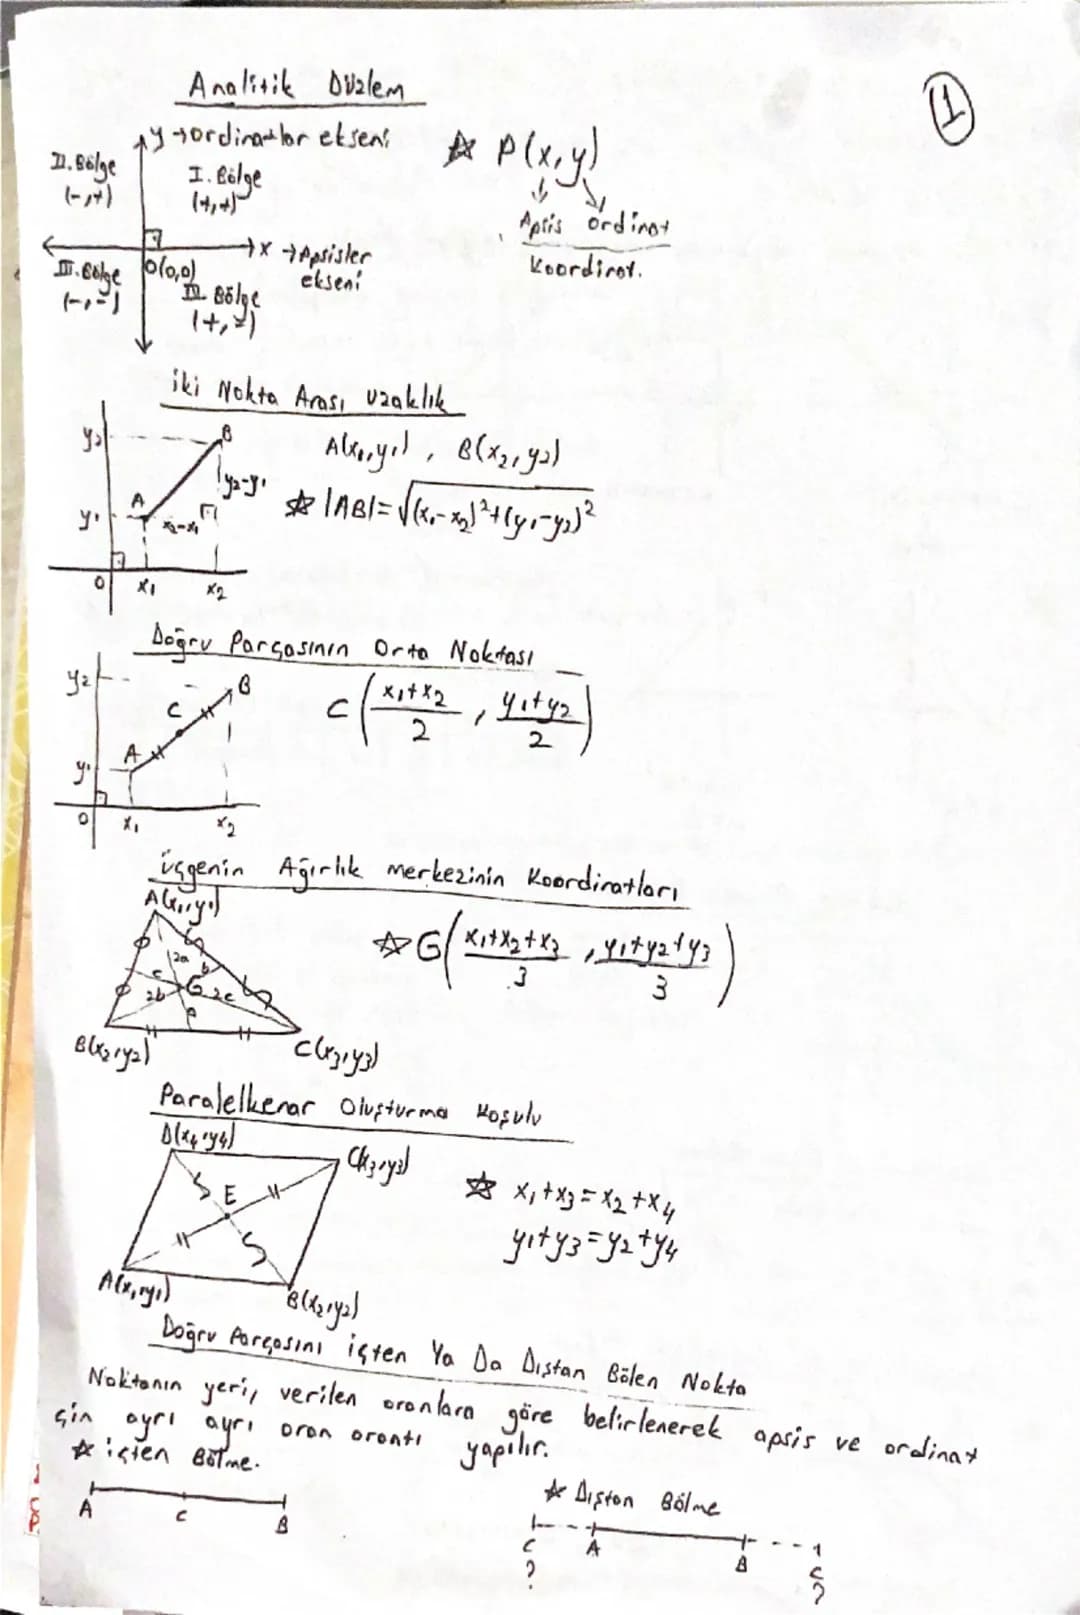 Analitik Düzlem
1
y → ordinatlar ekseni
II. Bölge
(-,+)
I. Bölge
(+,+)
x → Apsisler
ekseni
III. Bölge
(-,-)
O(0,0)
IV. Bölge
(+,-)
☆ P(x,y)
Apsis ordinat
Koordinat.
İki Nokta Arası Uzaklık
y2
B
y2-y1
A
y1
x2-x1
O
x1
x2
A(x1,y1), B(x2,y2)
☆ |AB|=√(x1-x2)²+(y1-y2)²
Doğru Parçasının Orta Noktası
y2
B
C
A
y1
O
x1
x2
C(x1+x2/2, y1+y2/2)
Üçgenin Ağırlık merkezinin Koordinatları
A(x1,y1)
2a
b
c
G
2b
2c
a
B(x2,y2)
C(x3,y3)
☆ G(x1+x2+x3/3, y1+y2+y3/3)
Paralelkenar Oluşturma Koşulu
D(x4,y4)
C(x3,y3)
E
A(x1,y1)
B(x2,y2)
☆ x1+x3=x2+x4
y1+y3=y2+y4
Doğru Parçasını içten Ya Da Dıştan Bölen Nokta
Noktanın yeri, verilen oranlara göre belirlenerek apsis ve ordinat
için ayrı ayrı oran orantı yapılır.
☆ içten Bölme.
A
C
B
☆ Dıştan Bölme
C
?
A
B
C
?